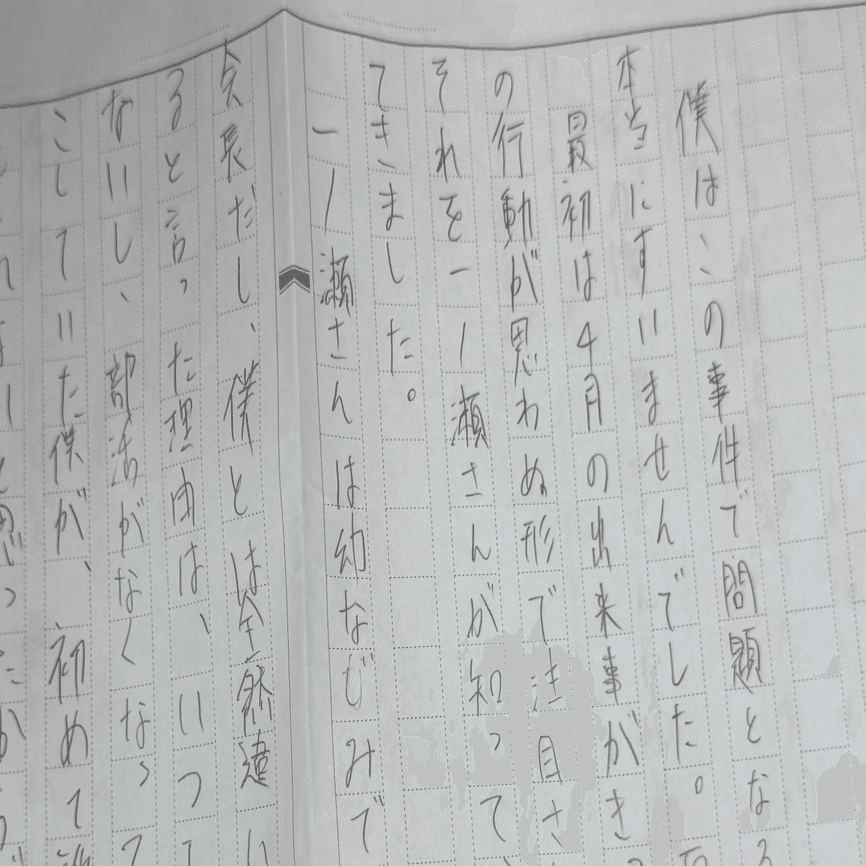 僕はこの事件で問題とな
本当にすいませんでした。
最初は4月の出来事がき
の行動が思わぬ形で注目さ
それを一ノ瀬さんが知って、
てきました。
一ノ瀬さんは幼なじみで
会長だし、僕とは全然違い
ると言った理由は、いつ
ないし、部活がなくなって
こしていた僕が、初めて
と思ったか